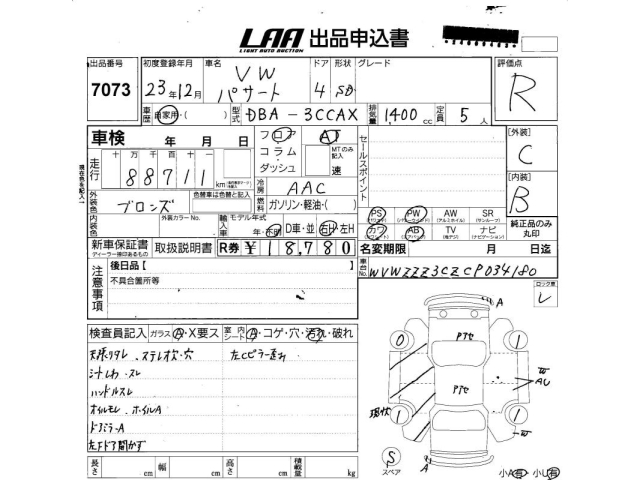 LAA 出品申込書
LIGHT AUTO AUCTION
出品番号 初度登録年月 車名 ドア 形状 グレード 評価点
7073 23年12月 VW パサート 4 SD R
車歴 自家用・( ) 型式 DBA-3CCAX 排気量 1400cc 定員 5人
車検 年 月 日 フロア AT セールスポイント [外装]
コラム MTのみ記入 C
ダッシュ 速
走行 十万千百十
88711 km
冷房 AAC [内装]
外装色 ブロンズ 色替車は色替と記入 燃料 ガソリン・軽油・( ) B
内装色 外装カラーNo. 輸入車 モデル年式 年・不明 D車・並 右H・左H
PS PW AW SR 純正品のみ
カワ AB TV ナビ 丸印
(エアバック) (電デジ) (ナビゲーション)
新車保証書 取扱説明書 R券 ¥18,780 名変期限 月 日迄
ディーラー捺印あるもの
注意事項 後日品 [ ] 車台No. WVWZZZ3CZCP034180
不具合箇所等 ロック車
レ
検査員記入 ガラス A・X要ス 室内シート A・コゲ・穴・汚れ・破れ
天張リタレ、ステレオ欠・穴 左Cピラー歪み
シートしわ・スレ
ハンドルスレ
オイルモレ、ホイルA
ドアミラーA
左Fドア開かず
A
0 1 アセ
アセ W AU
現状 1 1 W
S スペア A 小A有・小U有
長さ cm 幅 cm 高さ cm 積載量 kg